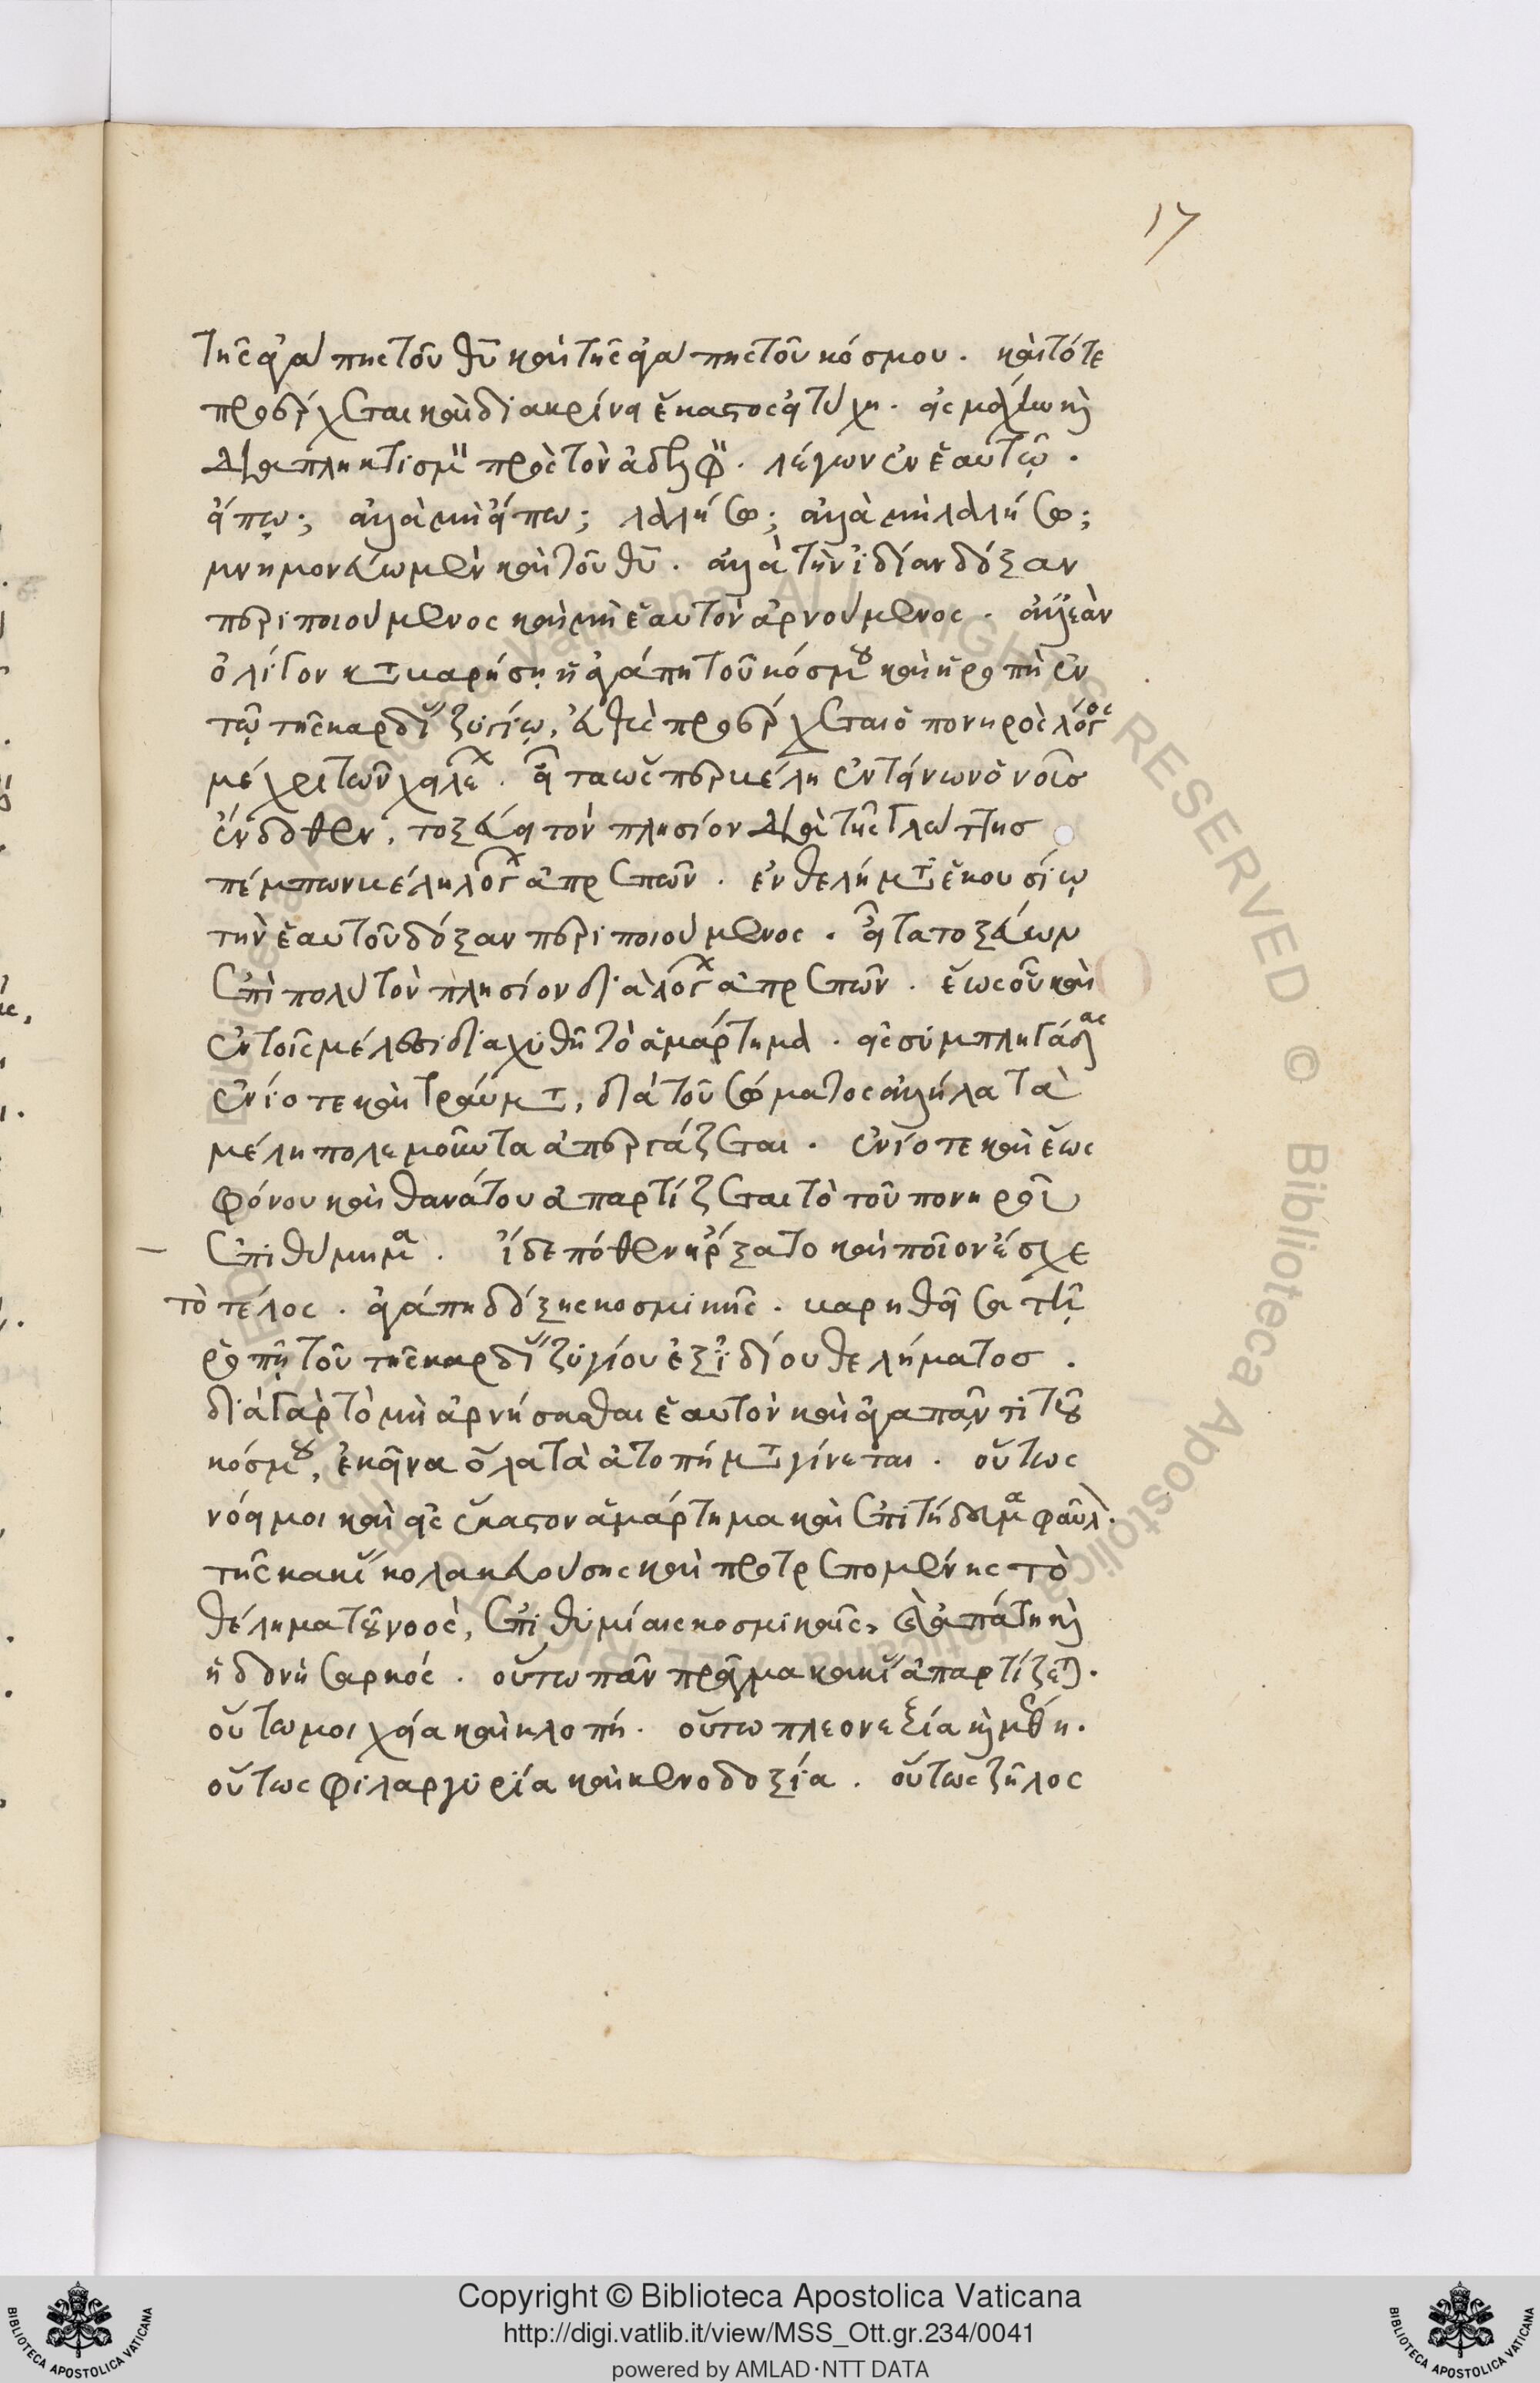 17
τῆς ἀγάπης τοῦ θῦ καὶ τῆς ἀγάπης τοῦ κόσμου . καὶ τότε
προέρχεται καὶ διακρίνει ἕκαστος εἰ τύχῃ . εἰς μάχην καὶ
διαπληκτισμὸν πρὸς τὸν ἀδελφόν . λέγων ἐν ἑαυτῷ .
εἴπω ; ἀλλὰ μὴ εἴπω ; λαλήσω ; ἀλλὰ μὴ λαλήσω ;
μνημονεύων μὲν καὶ τοῦ θῦ . ἀλλὰ τὴν ἰδίαν δόξαν
περιποιούμενος καὶ μὴ ἑαυτὸν ἀρνούμενος . ἀλλ' ἐὰν
ὀλίγον καταβαρήσῃ ἡ ἀγάπη τοῦ κόσμου καὶ ἡ ῥοπὴ ἐν
τῷ τῆς καρδίας ζυγίῳ , εὐθὺς προέρχεται ὁ πονηρὸς λόγος
μέχρι τῶν χειλέων . εἶτα ὡς περ βέλη ἐντείνων ὁ νοῦς
ἔνδοθεν , τοξεύει τὸν πλησίον διὰ τῆς γλώττης
πέμπων βέλη λόγων ἀπρεπῶν . ἐν θελήματι ἑκουσίῳ
τὴν ἑαυτοῦ δόξαν περιποιούμενος . εἶτα τοξεύων
ἐπὶ πολὺ τὸν πλησίον διὰ λόγων ἀπρεπῶν . ἕως οὗ καὶ
ἐν τοῖς μέλεσι διαχυθῇ τὸ ἁμάρτημα . εἰς συμπληγάδας
ἐνίοτε καὶ τραύματα , διὰ τοῦ σώματος ἀλλήλα τὰ
μέλη πολεμοῦντα ἀπεργάζεται . ἐνίοτε καὶ ἕως
φόνου καὶ θανάτου ἀπαρτίζεται τὸ τοῦ πονηροῦ
ἐπιθύμημα . ἴδε πόθεν ἤρξατο καὶ ποῖον ἔσχε
τὸ τέλος . ἀγάπη δόξης κοσμικῆς . βαρηθεῖσα τῇ
ῥοπῇ τοῦ τῆς καρδίας ζυγίου ἐξ ἰδίου θελήματος .
διὰ γὰρ τὸ μὴ ἀρνήσασθαι ἑαυτὸν καὶ ἀγαπᾶν τι τοῦ
κόσμου , ἐκεῖνα ὅλα τὰ ἀτοπήματα γίνεται . οὕτως
νόει μοι καὶ εἰς ἕκαστον ἁμάρτημα καὶ ἐπιτήδευμα φαῦλον .
τῆς κακίας κολακευούσης καὶ προτρεπομένης τὸ
θέλημα τοῦ νοὸς , ἐπιθυμίαις κοσμικαῖς , καὶ ἀπάτῃ καὶ
ἡδονῇ σαρκός . οὕτω πᾶν πρᾶγμα κακίας ἀπαρτίζεται .
οὕτω μοιχεία καὶ κλοπή . οὕτω πλεονεξία καὶ μέθη .
οὕτως φιλαργυρία καὶ κενοδοξία . οὕτως ζῆλος
Copyright © Biblioteca Apostolica Vaticana
http://digi.vatlib.it/view/MSS_Ott.gr.234/0041
powered by AMLAD·NTT DATA